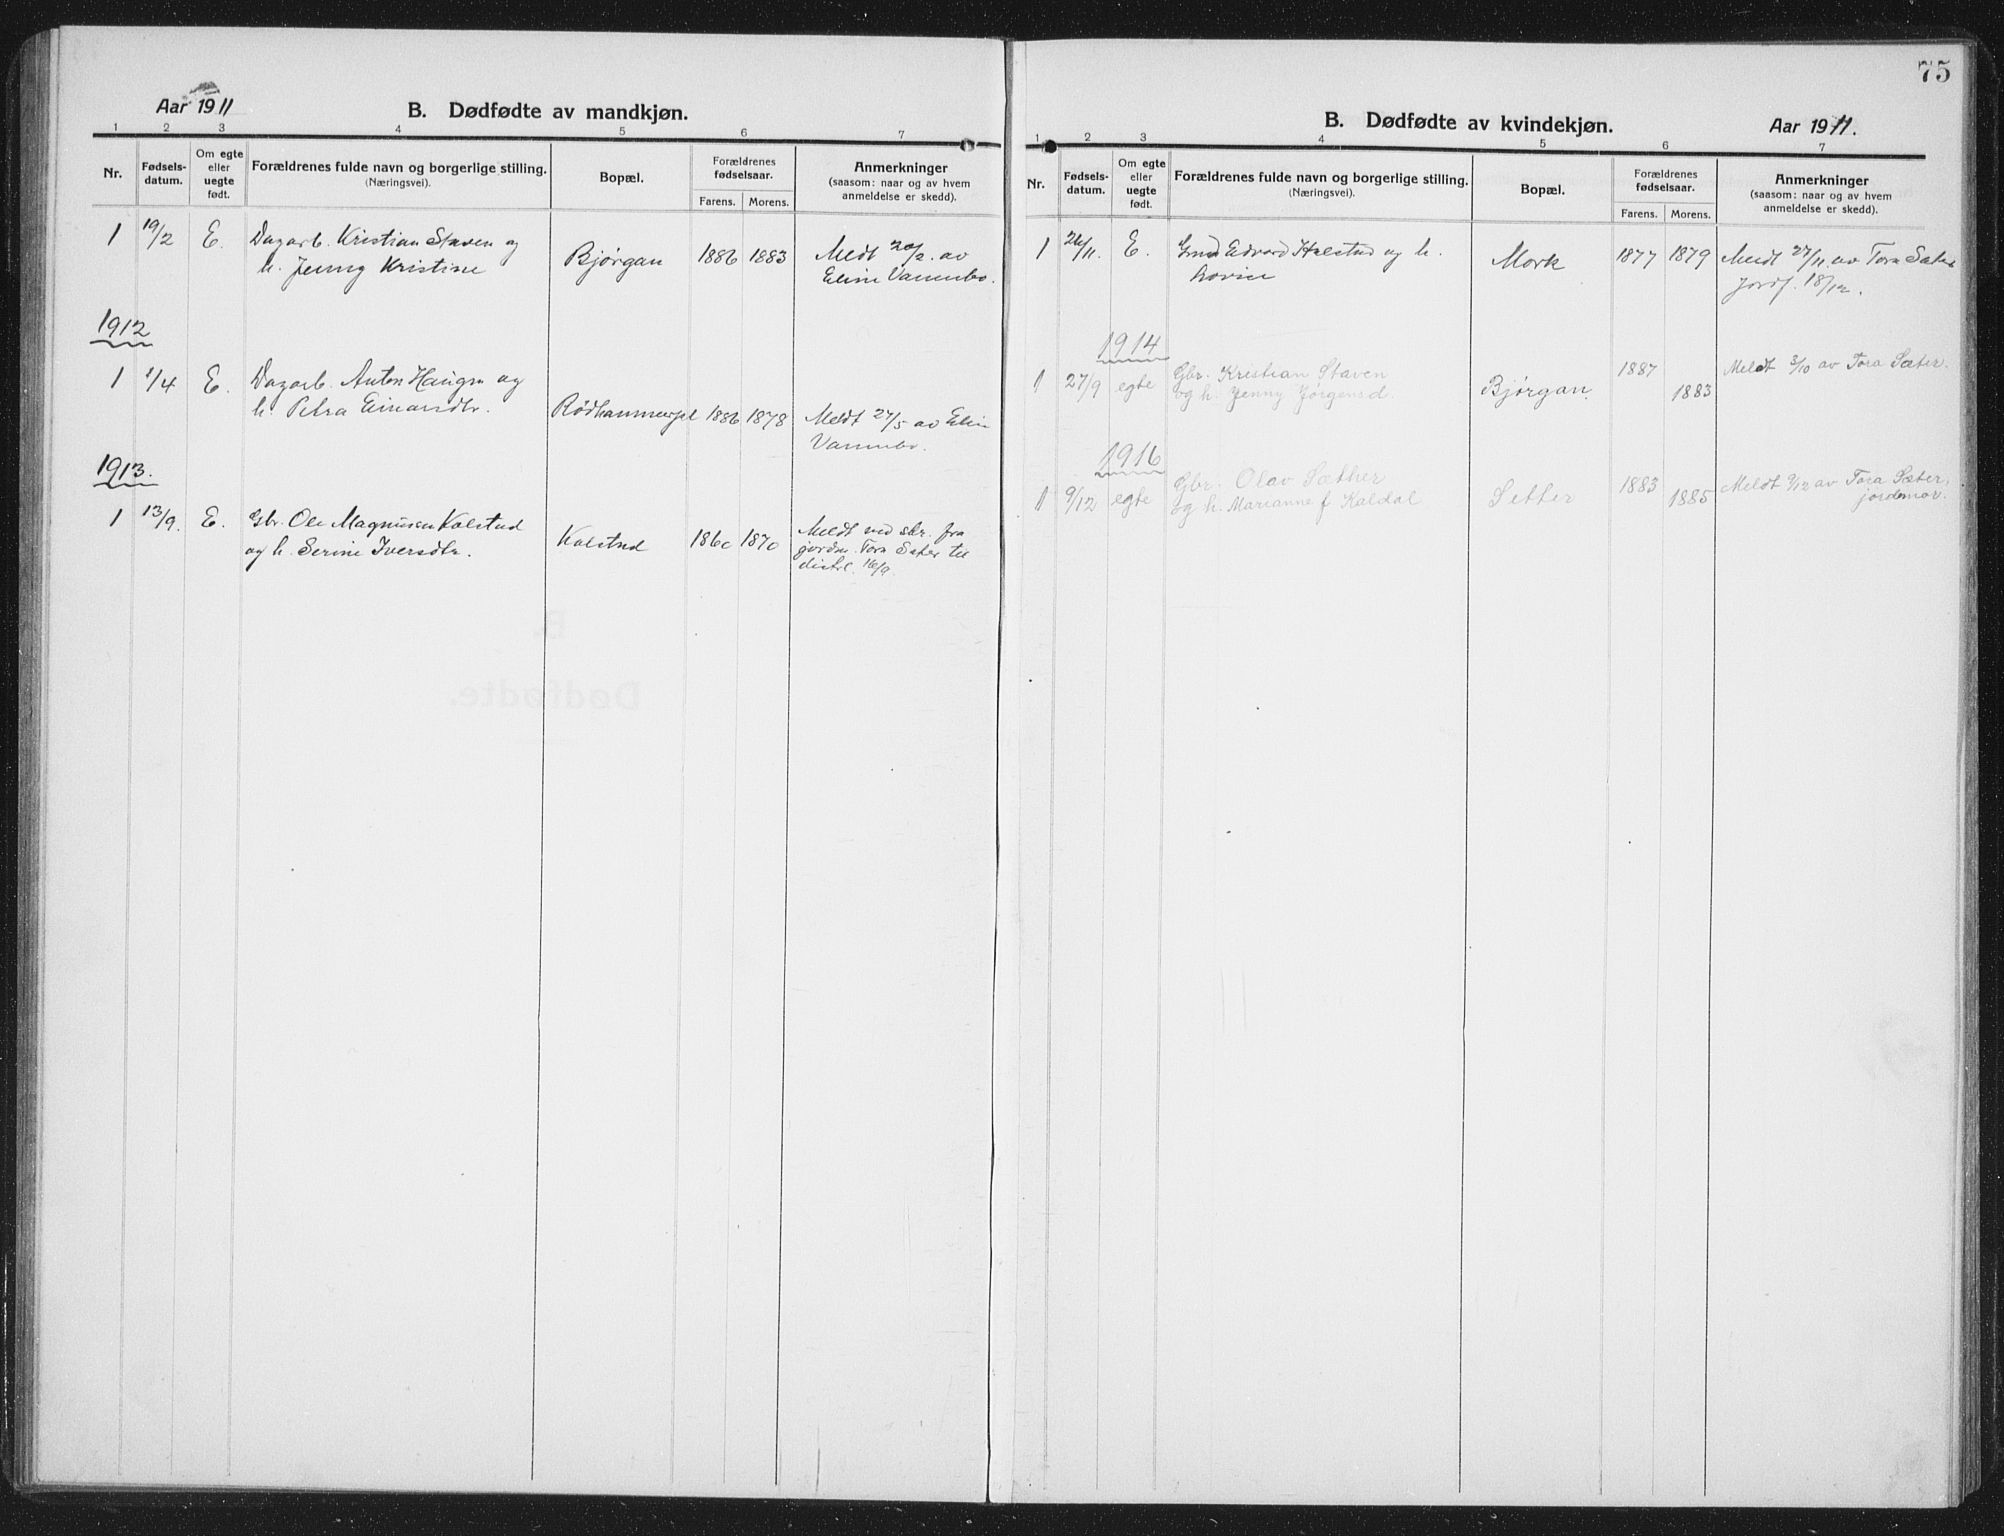 75
Aar 1911
B. Dødfødte av mandkjøn.
1 2 3 4 5 6 7
Nr.
Fødsels-
datum.
Om egte
eller
uegte
født.
Forældrenes fulde navn og borgerlige stilling.
(Næringsvei).
Bopæl.
Forældrenes
fødselsaar.
Farens. Morens.
Anmerkninger
(saasom: naar og av hvem
anmeldelse er skedd).
1 19/2 E. Dagarb. Kristian Staven og
h. Jenny Kristine
Bjørgan 1886 1883
Meldt 20/2. av
Eline Vannebo.
1912
1 1/4 E. Dagarb. Anton Haugen og
h. Petra Einarsdtr.
1886 1878
Meldt 27/5 av Elin
Vannebo.
1913.
1 13/9. E. Gbr. Ole Magnusen Kolstad
og h. Serine Iversdtr.
Kolstad 1860 1870
Meldt ved skr. fra
jordm. Tora Sæter til
distrl. 16/9.
B. Dødfødte av kvindekjøn.
Aar 1911.
1 2 3 4 5 6 7
Nr.
Fødsels-
datum.
Om egte
eller
uegte
født.
Forældrenes fulde navn og borgerlige stilling.
(Næringsvei).
Bopæl.
Forældrenes
fødselsaar.
Farens. Morens.
Anmerkninger
(saasom: naar og av hvem
anmeldelse er skedd).
1 26/11. E. Edvard Halstad og h.
Lovise
Mork 1877 1879
Meldt 27/11. av Tora Sæter
Jordf. 18/12.
1914
1 27/9 egte Gbr. Kristian Staven
og h. Jenny Jørgensd.
Bjørgan. 1887 1883
Meldt 3/10 av Tora Sæter.
1916
1 9/12 egte Gbr. Olav Sæther
og h. Marianne f Kaldal
Setter 1883 1885
Meldt 9/12 av Tora Sæter,
jordemor.